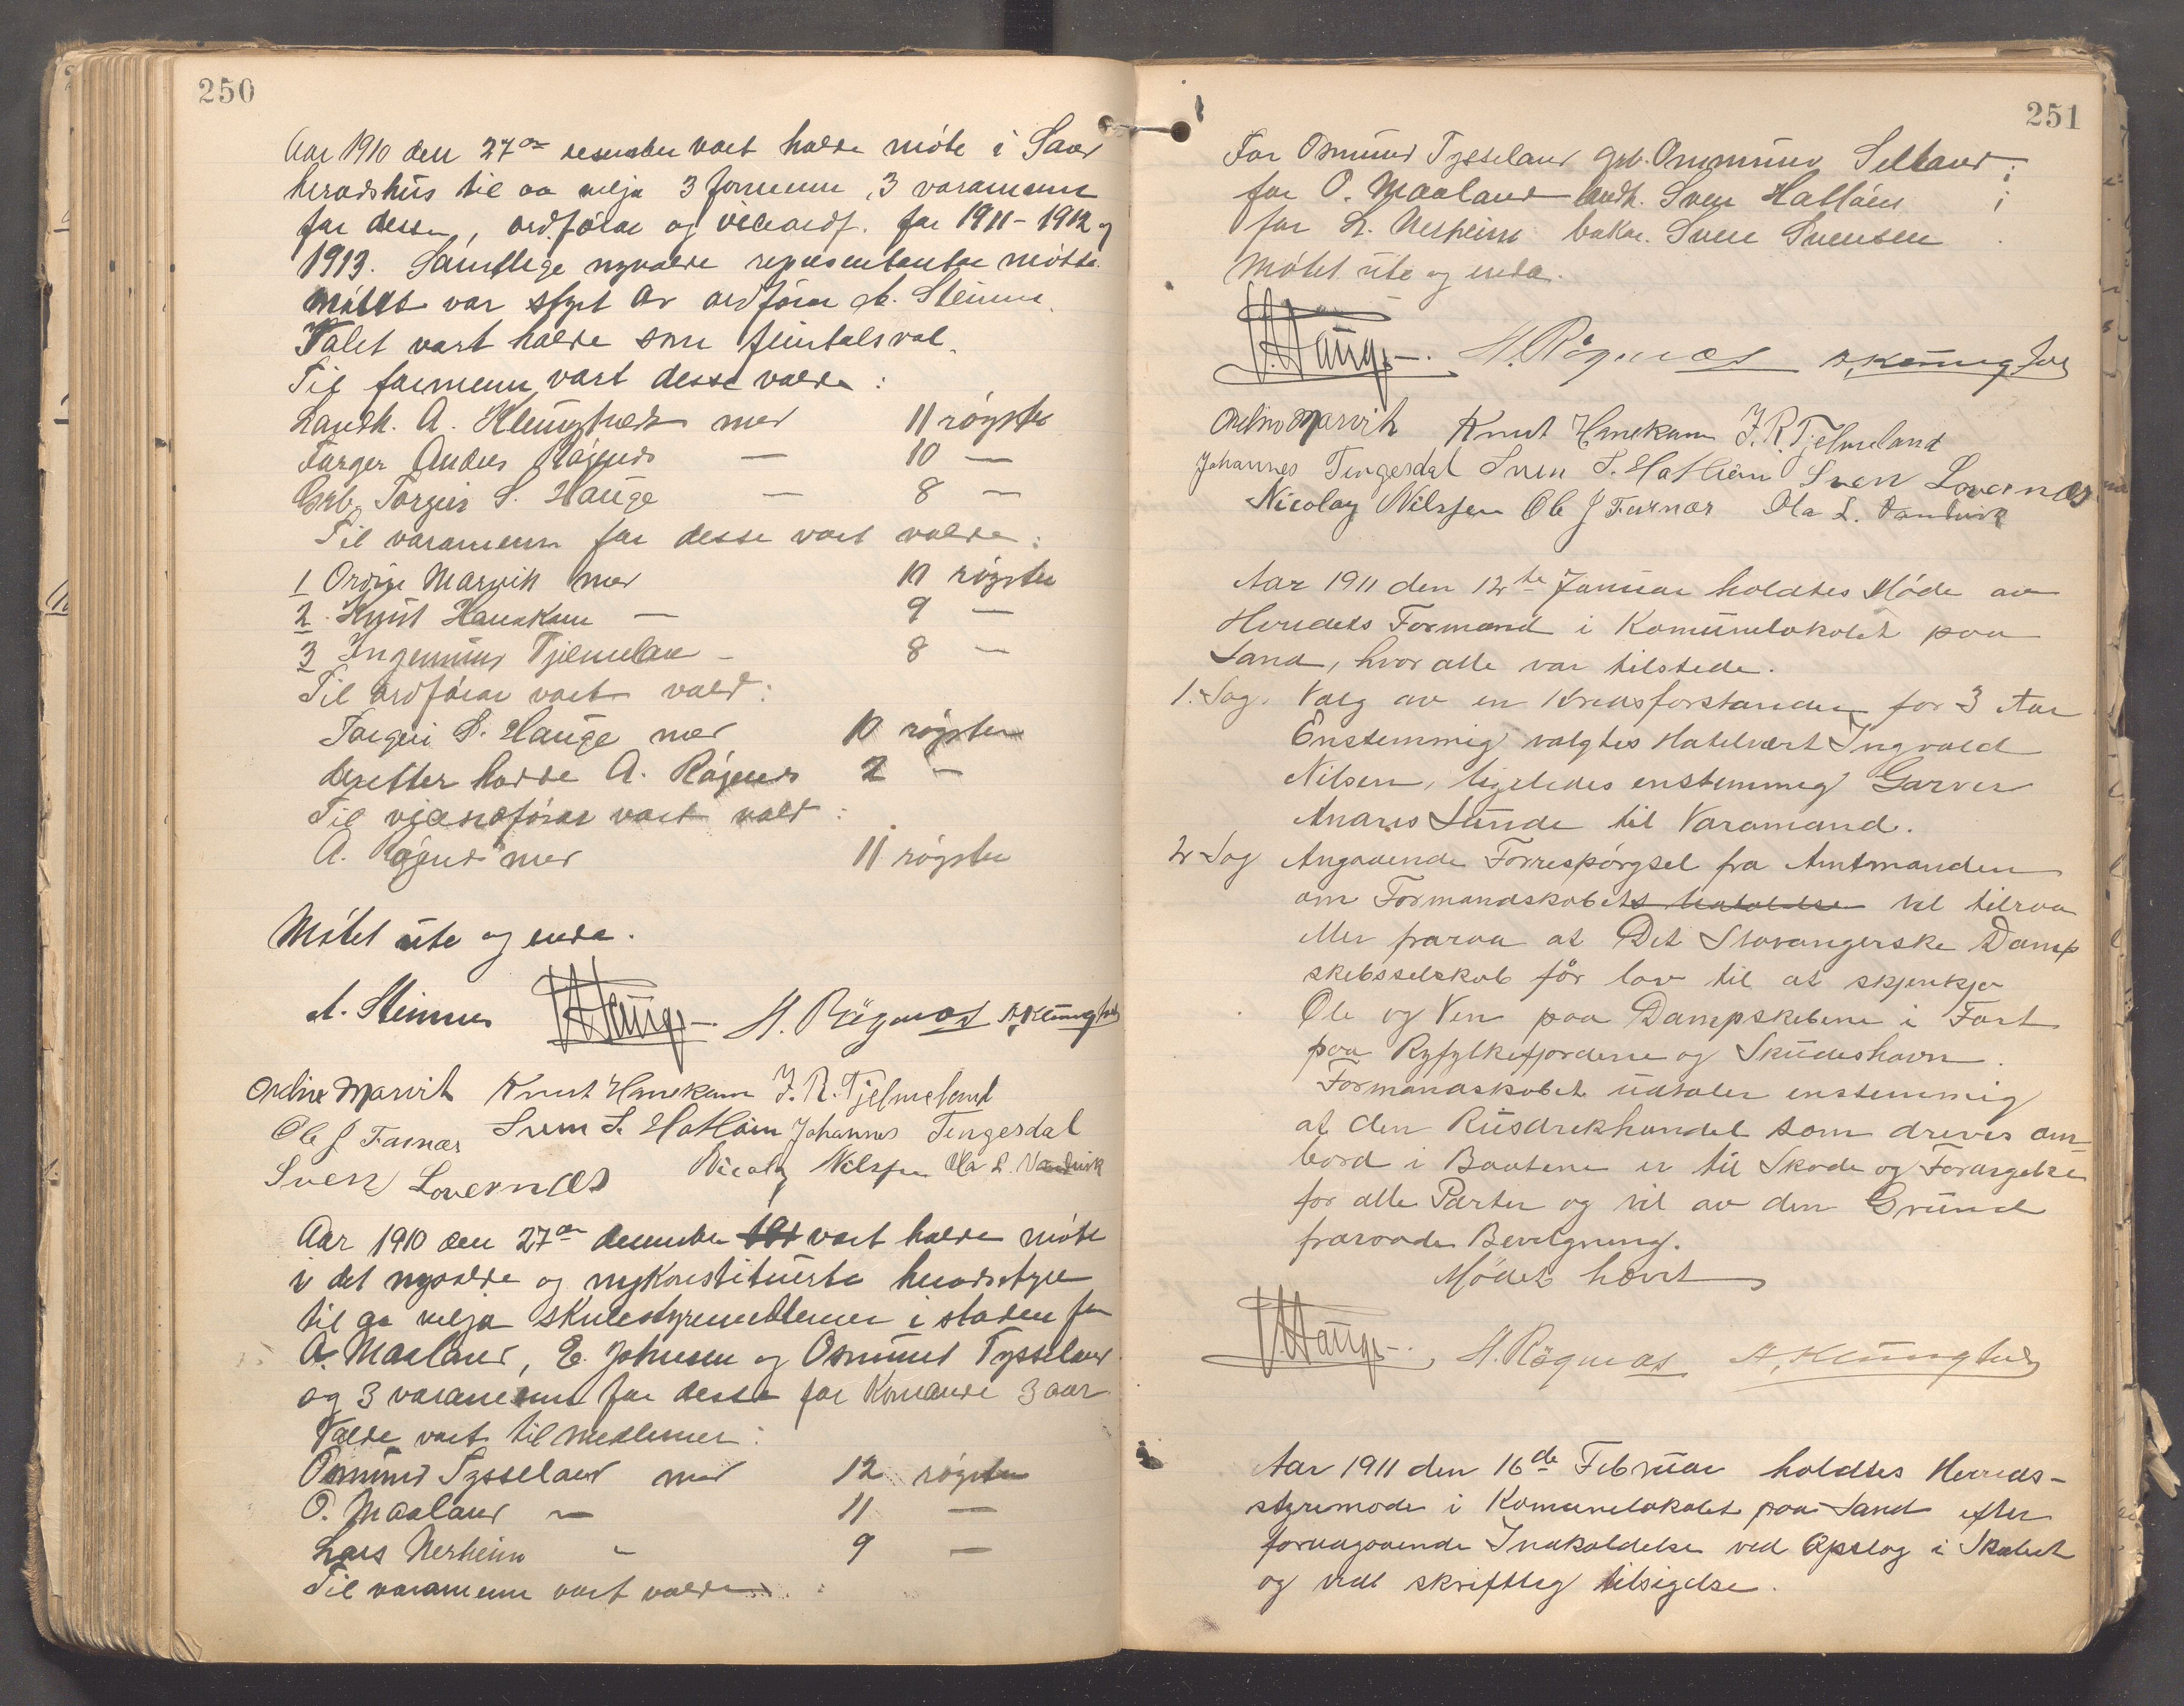 250
Aar 1910 den 27de desember vart halde møte i Sand
heradshus til aa velja 3 formenn, 3 varamenn
for desse, ordførar og viceordf. for 1911-1912 og
1913. Samtlege nyvalde representantar møtte.
Møtet var styrt av ordførar A. Steinnes
Valet vart halde som fleirtalsval.
Til formenn vart desse valde:
Landh. A. Klungtvedt med 11 røyster
Farger Anders Røgnås — 10 —
Grb. Torgeir S. Hauge — 8 —
Til varamenn for desse vart valde:
1 Ordin Marvik med 11 røyster
2. Knut Hanakam — 9 —
3 Ingemund Tjelmeland — 8 —
Til ordførar vart vald:
Torgeir S. Hauge med 10 røyster
deretter hadde A. Røgnås 2 —
Til vicaordførar vart vald:
A. Røgnås med 11 røyster
Møtet ute og enda.
A. Steinnes T. Hauge. A. Rögnaas A. Klungtvedt
Ordin Marvik Knut Hanekam I. R. Tjelmeland
Ole J Farnær Sven S. Hatlöin Johannes Tengesdal
Sven Lovernæs Nicolay Nilssen Ola L. Vandvik
Aar 1910 den 27de desember vart halde møte
i det nyvalde og nykonstituerte heradsstyre
til aa velja skulestyremedlemer i staden for
O. Maaland, E. Johnsen og Osmund Tysseland
og 3 varamenn for desse for komande 3 aar
Valde vart til medlemer:
Osmund Tysseland med 12 røyster
O. Maaland — 11 —
Lars Nerheim — 9 —
Til varamenn vart valde:
251
For Osmund Tysseland grb. Ommund Selland;
for O. Maaland landh. Sven Hatløin;
for L. Nerheim bakar. Sven Svensen.
Møtet ute og enda.
T. Hauge. A. Rögnaas A. Klungtvedt
Ordin Marvik Knut Hanekam I. R. Tjelmeland
Johannes Tengesdal Sven S. Hatlöin Sven Lovernæs
Nicolay Nilssen Ole J Farnær Ola L. Vandvik
Aar 1911 den 12te Januar holdtes Møde av
Herredets Formænd i Komunelokalet paa
Sand, hvor alle var tilstede.
1. Sag. Valg av en Kredsforstander for 3 Aar
Enstemmig valgtes Hotelvært Ingvald
Nilsen, ligeledes enstemmig Garver
Anares Sunde til Varamand.
2 Sag Angaaende Forrespørgsel fra Amtmanden
om Formandskabets Uttalelse vil tilraa
eller fraraa at Det Stavangerske Damp
skebsselskab får lov til at skjenkja
Øle og Vin paa Dampskebene i Fart
paa Ryfylkefjordene og Skudeshavn.
Formandskabet udtaler enstemmig
at den Rusdrekhandel som drives om
bord i Baatene er til Skade og Forargelse
for alle Parter og vil av den Grund
fraraade Bevilgning.
Mødet hævet
T. Hauge. A. Rögnaas A. Klungtvedt
Aar 1911 den 16de Februar holdtes Herreds-
styremøde i Komunelokalet paa Sand efter
foruagaaende Indkaldelse ved Opslag i Skabet
og vedt skriftleg tilsigelse.